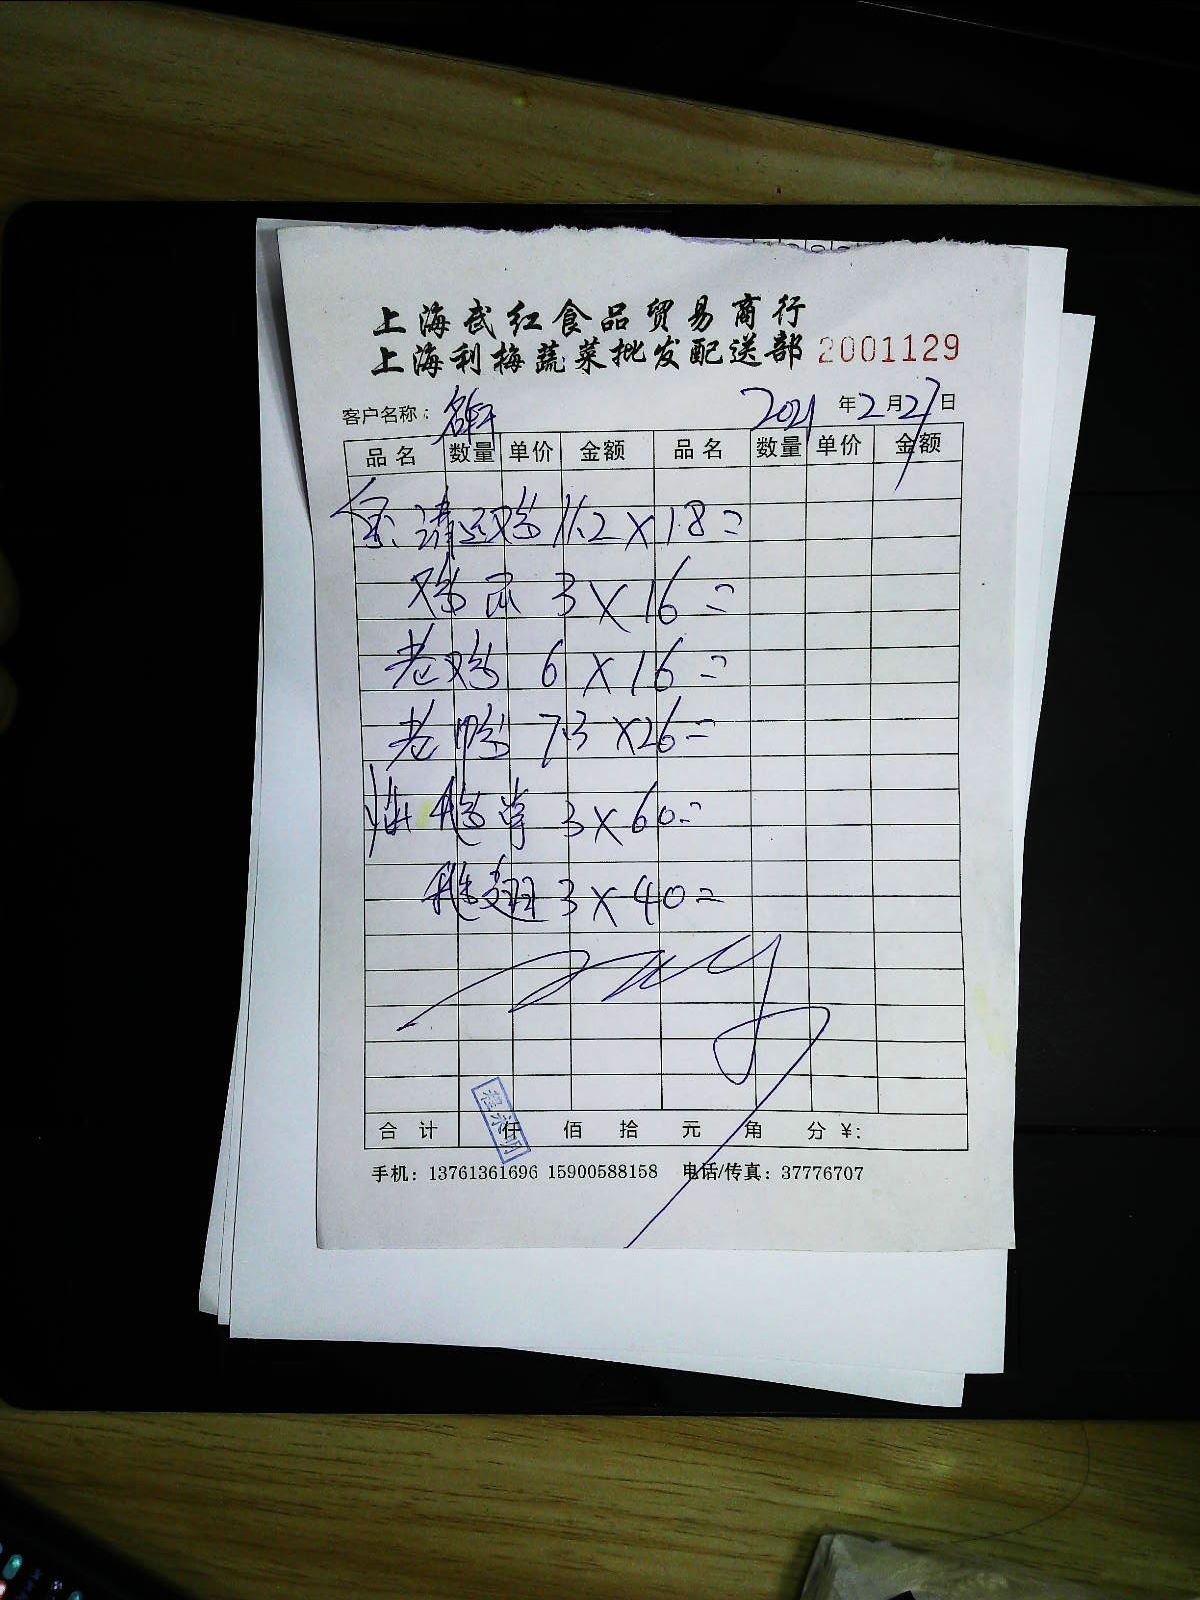 上海武红食品贸易商行
上海利梅蔬菜批发配送部 2001129
客户名称： 2021年2月27日
品名 数量 单价 金额 品名 数量 单价 金额
鸡 11.2×18=
鸡爪 3×16=
老鸡 6×16=
老鸭 7.3×26=
3×60=
翅 3×40=
合计 仟 佰 拾 元 角 分 ¥:
程永明
手机：13761361696 15900588158 电话/传真：37776707